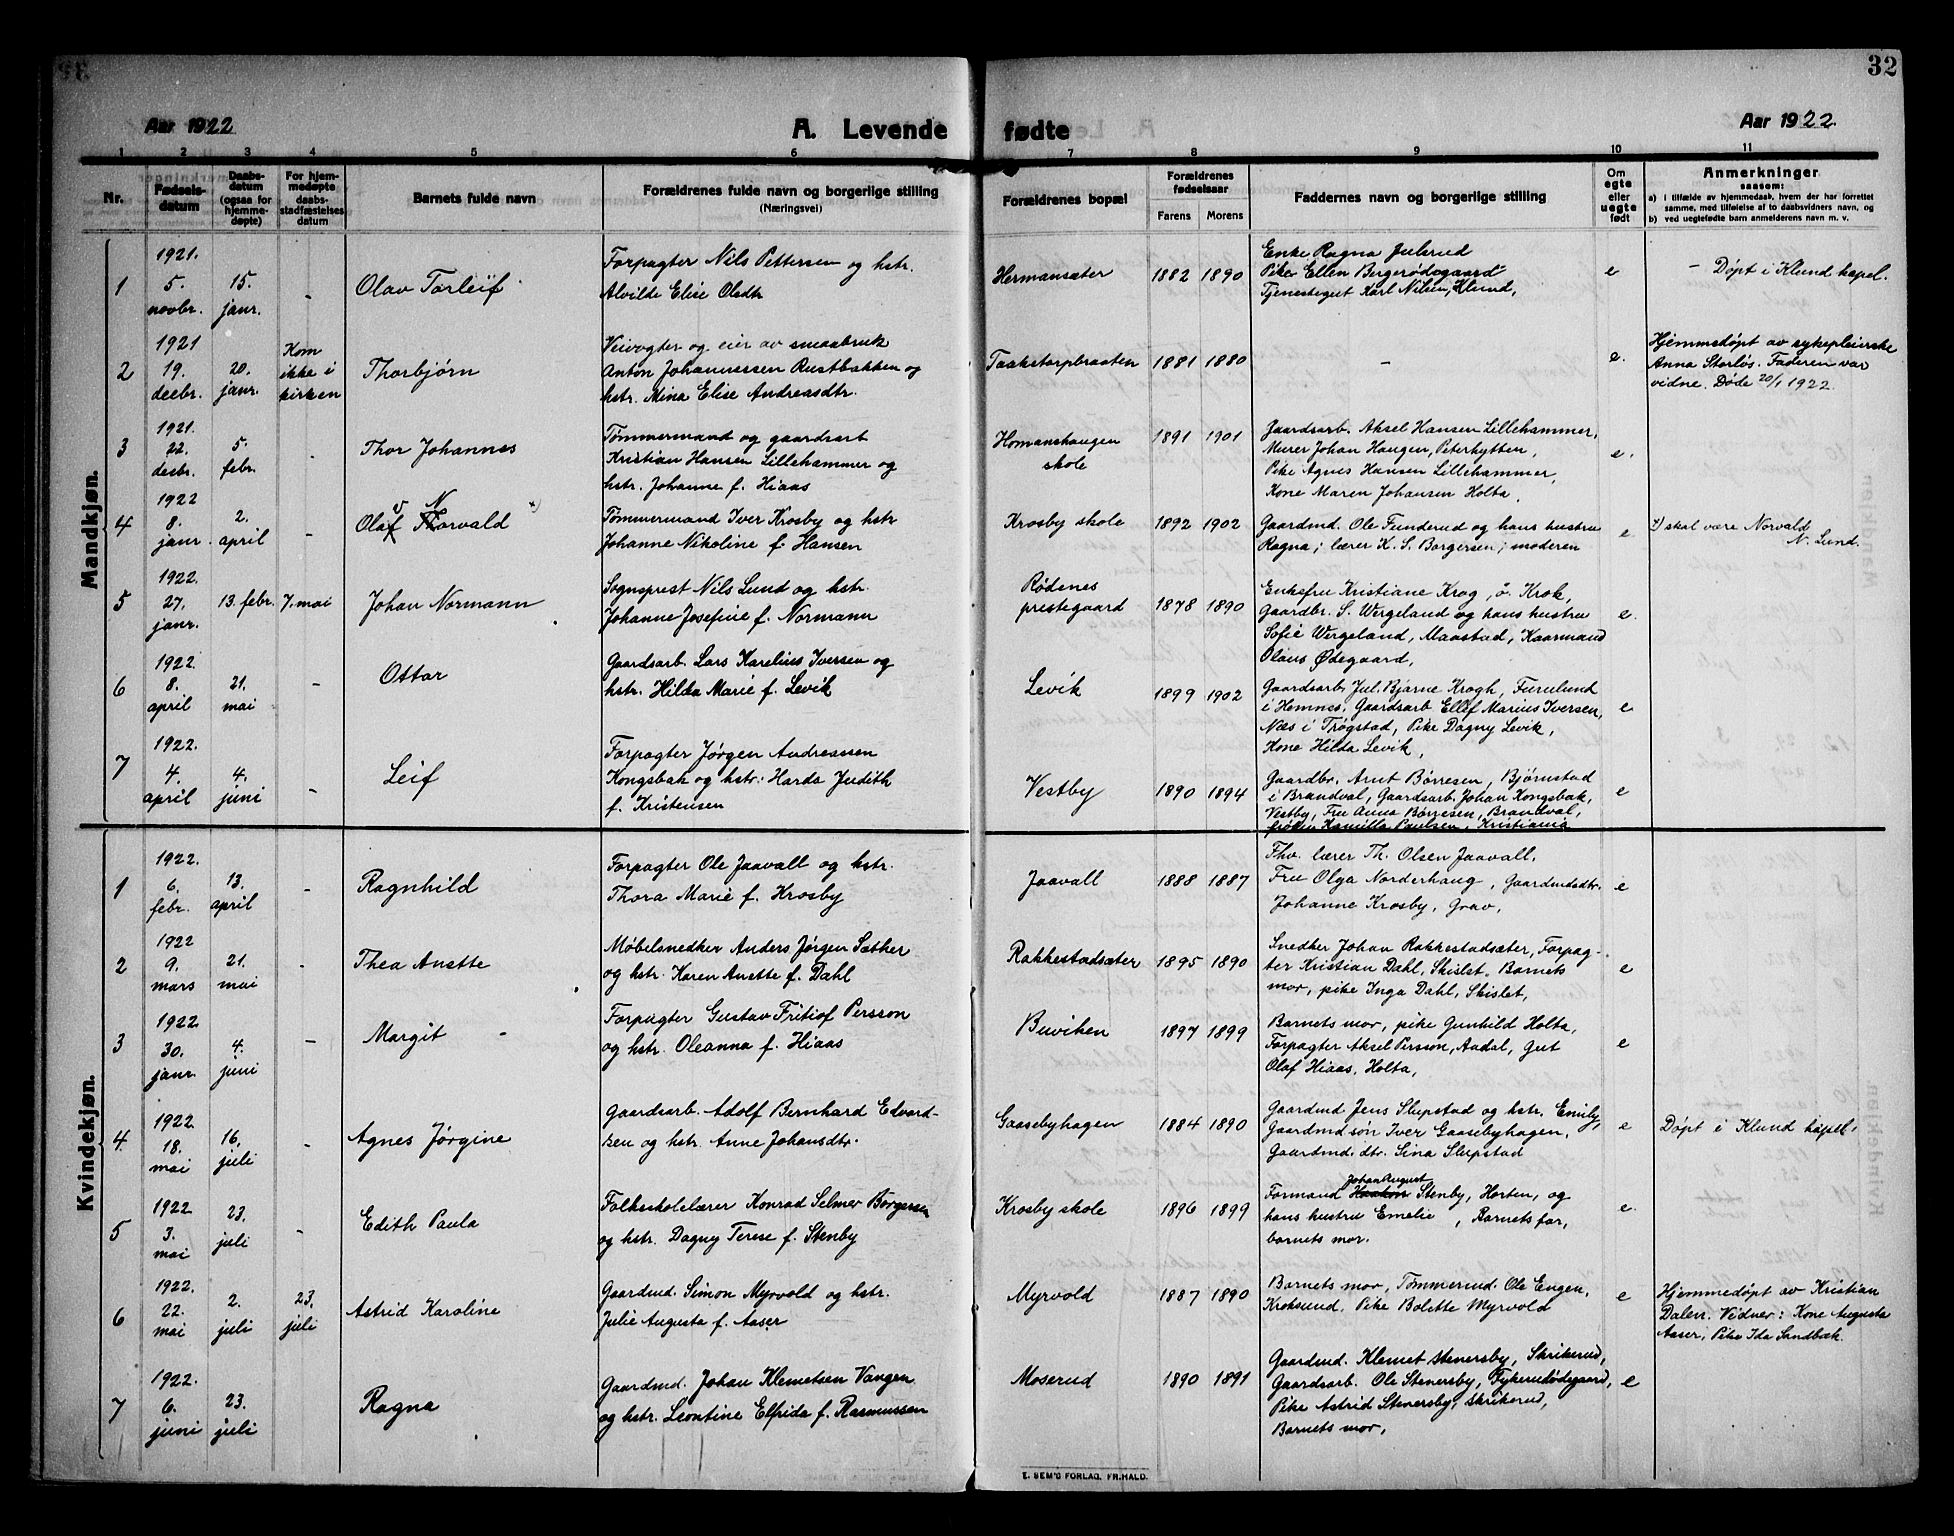 32
Aar 1922
A. Levende
fødte
Aar 1922.
1 2 3 4 5 6 7 8 9 10 11
Nr.
Fødsels-
datum
Daabs-
datum
(ogsaa for
hjemme-
døpte)
For hjem-
medøpte
daabs-
stadfæstelses
datum
Barnets fulde navn
Forældrenes fulde navn og borgerlige stilling
(Næringsvei)
Forældrenes bopæl
Forældrenes
fødselsaar
Farens Morens
Faddernes navn og borgerlige stilling
Om
egte
eller
uegte
født
Anmerkninger
saasom:
a) i tilfælde av hjemmedaab, hvem der har forrettet
samme, med tilføielse af to daabsvidners navn, og
b) ved uegtefødte barn anmelderens navn m. v.
Mandkjøn.
1
1921.
5.
novbr.
15.
janr.
-
Olav Torleif
Forpagter Nils Pettersen og hstr.
Alvilde Elise Olsdtr
Hermansæter
1882 1890
Enke Ragna Julsrud
Pike Ellen Bergerødegaard
Tjenestegut Karl Nilsen, Klund,
e
- Døpt i Klund kapel.
2
1921
19.
decbr.
20.
janr.
Kom
ikke i
kirken
Thorbjørn
Veivogter og eier av smaabruk
Anton Johannessen Rustbakken og
hstr. Mina Elise Andreasdtr.
Taakstorpbraaten
1881 1880
-
e.
Hjemmedøpt av sykepleierske
Anna Storløs. Faderen var
vidne. Døde 20/1 1922.
3
1921.
22.
desbr.
5.
febr.
-
Thor Johannes
Tømmermand og gaardsarb
Kristian Hansen Lillehammer og
hstr. Johanne f. Hiaas
Homanshaugen
skole
1891 1901
Gaardsarb. Aksel Hansen Lillehammer,
Murer Johan Haugen, Peterhytten,
Pike Agnes Hansen Lillehammer,
Kone Maren Johansen Holta,
e.
4
1922
8.
janr.
2.
april
-
v N
Olaf Thorvald x)
Tømmermand Iver Krosby og hstr
Johanne Nikoline f. Hansen
Krosby skole
1892 1902
Gaardmd. Ole Funderud og hans hustru
Ragna; lærer K. S. Borgersen; moderen
e.
x) skal være Norvald
N. Lund.
5
1922.
27.
janr.
13. febr.
7. mai
Johan Normann
Sogneprest Nils Lund og hstr.
Johanne Josefine f. Normann
Rødenes
prestegaard
1878 1890
Enkefru Kristiane Krog, ö. Krok,
Gaardbr. S. Wergeland og hans hustru
Sofie Wergeland, Maastad, Kaarmand
Olaus Ødegaard,
e.
6
1922.
8.
april
21.
mai
-
Ottar
Gaardsarb. Lars Karelius Iversen og
hstr. Hilda Marie f. Levik
Levik
1899 1902
Gaardsarb. Jul. Bjarne Krogh, Furulund
i Hemnes, Gaardsarb Ellef Marius Iversen,
Næs i Trøgstad, Pike Dagny Levik,
Kone Hilda Levik,
e.
7
1922.
4.
april
4.
juni
-
Leif
Forpagter Jørgen Andreassen
Kongsbak og hstr: Harda Judith
f. Kristensen
Vestby
1890 1894
Gaardbr. Arnt Børresen, Bjørnstad
i Brandval, Gaardsarb. Johan Kongsbak,
Vestby, Fru Anna Børresen, Brandval,
frøken Kamilla Paulsen, Kristiania
e
Kvindekjøn.
1
1922.
6.
febr.
13.
april
-
Ragnhild
Forpagter Ole Jaavall og hstr.
Thora Marie f. Krosby
Jaavall
1888 1887
Fhv. lærer Th. Olsen Jaavall,
Fru Olga Norderhaug, Gaardmdsdtr.
Johanne Krosby, Grav,
e
2
1922
9.
mars
21.
mai
-
Thea Anette
Møbelsnedker Anders Jørgen Sæther
og hstr. Karen Anette f. Dahl
Rakkestadsæter
1895 1890
Snedker Johan Rakkestadsæter, Forpag-
ter Kristian Dahl, Skislet. Barnets
mor, pike Inga Dahl, Skislet,
e
3
1922.
30.
janr.
4.
juni
-
Margit
Forpagter Gustav Fritiof Persson
og hstr. Oleanna f. Hiaas
Buviken
1897 1899
Barnets mor, pike Gunhild Holta,
Forpagter Aksel Persson, Aadal, gut
Olaf Hiaas, Holta,
e
4.
1922.
18.
mai
16.
juli
-
Agnes Jørgine
Gaardsarb. Adolf Bernhard Edvard-
sen og hstr. Anne Johansdtr.
Gaasebyhagen
1884 1890
Gaardmd Jens Slupstad og hstr. Emily,
Gaardmdsøn Iver Gaasebyhagen,
Gaardmd. dtr. Sina Slupstad
e
Døpt i Klund kapel.
5
1922.
3.
mai
23.
juli
-
Edith Paula
Folkeskolelærer Konrad Selmer Borgersen
og hstr. Dagny Terese f. Stenby
Krosby skole
1896 1899
Johan August
Formand Haakon Stenby, Horten, og
hans hustru Emelie, Barnets far,
barnets mor.
e.
6
1922.
22.
mai
2.
juli
23.
juli
Astrid Karoline
Gaardmd. Simon Myrvold og hstr.
Julie Augusta f. Aaser
Myrvold
1887 1890
Barnets mor, Tømmermd. Ole Engen,
Kroksund, Pike Bolette Myrvold
e
Hjemmedøpt av Kristian
Dalen. Vidner: Kone Augusta
Aaser, Pike Ida Sandbæk.
7
1922.
6.
juni
23.
juli
Ragna
Gaardmd. Johan Klemetsen Vangen
og hstr. Leontine Elfrida f. Rasmussen
Moserud
1890 1891
Gaardmd. Klemet Stenersby, Skrikerud,
Gaardsarb. Ole Stenersby, Fykerudødegaard,
Pike Astrid Stenersby, Skrikerud,
Barnets mor,
e
E. SEM'S FORLAG, FR.HALD.